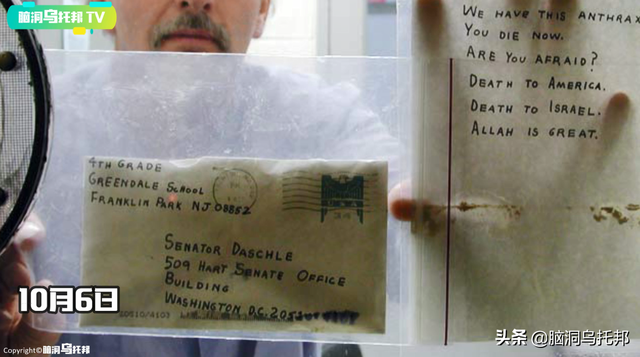 脑洞乌托邦 TV
WE HAVE THIS ANTHRAX
YOU DIE NOW.
ARE YOU AFRAID?
DEATH TO AMERICA.
DEATH TO ISRAEL.
ALLAH IS GREAT.
4TH GRADE
GREENDALE SCHOOL
FRANKLIN PARK NJ 08852
USA
34
SENATOR DASCHLE
509 HART SENATE OFFICE
BUILDING
WASHINGTON D.C. 2051
10月6日
Copyright©脑洞乌托邦
头条 @脑洞乌托邦